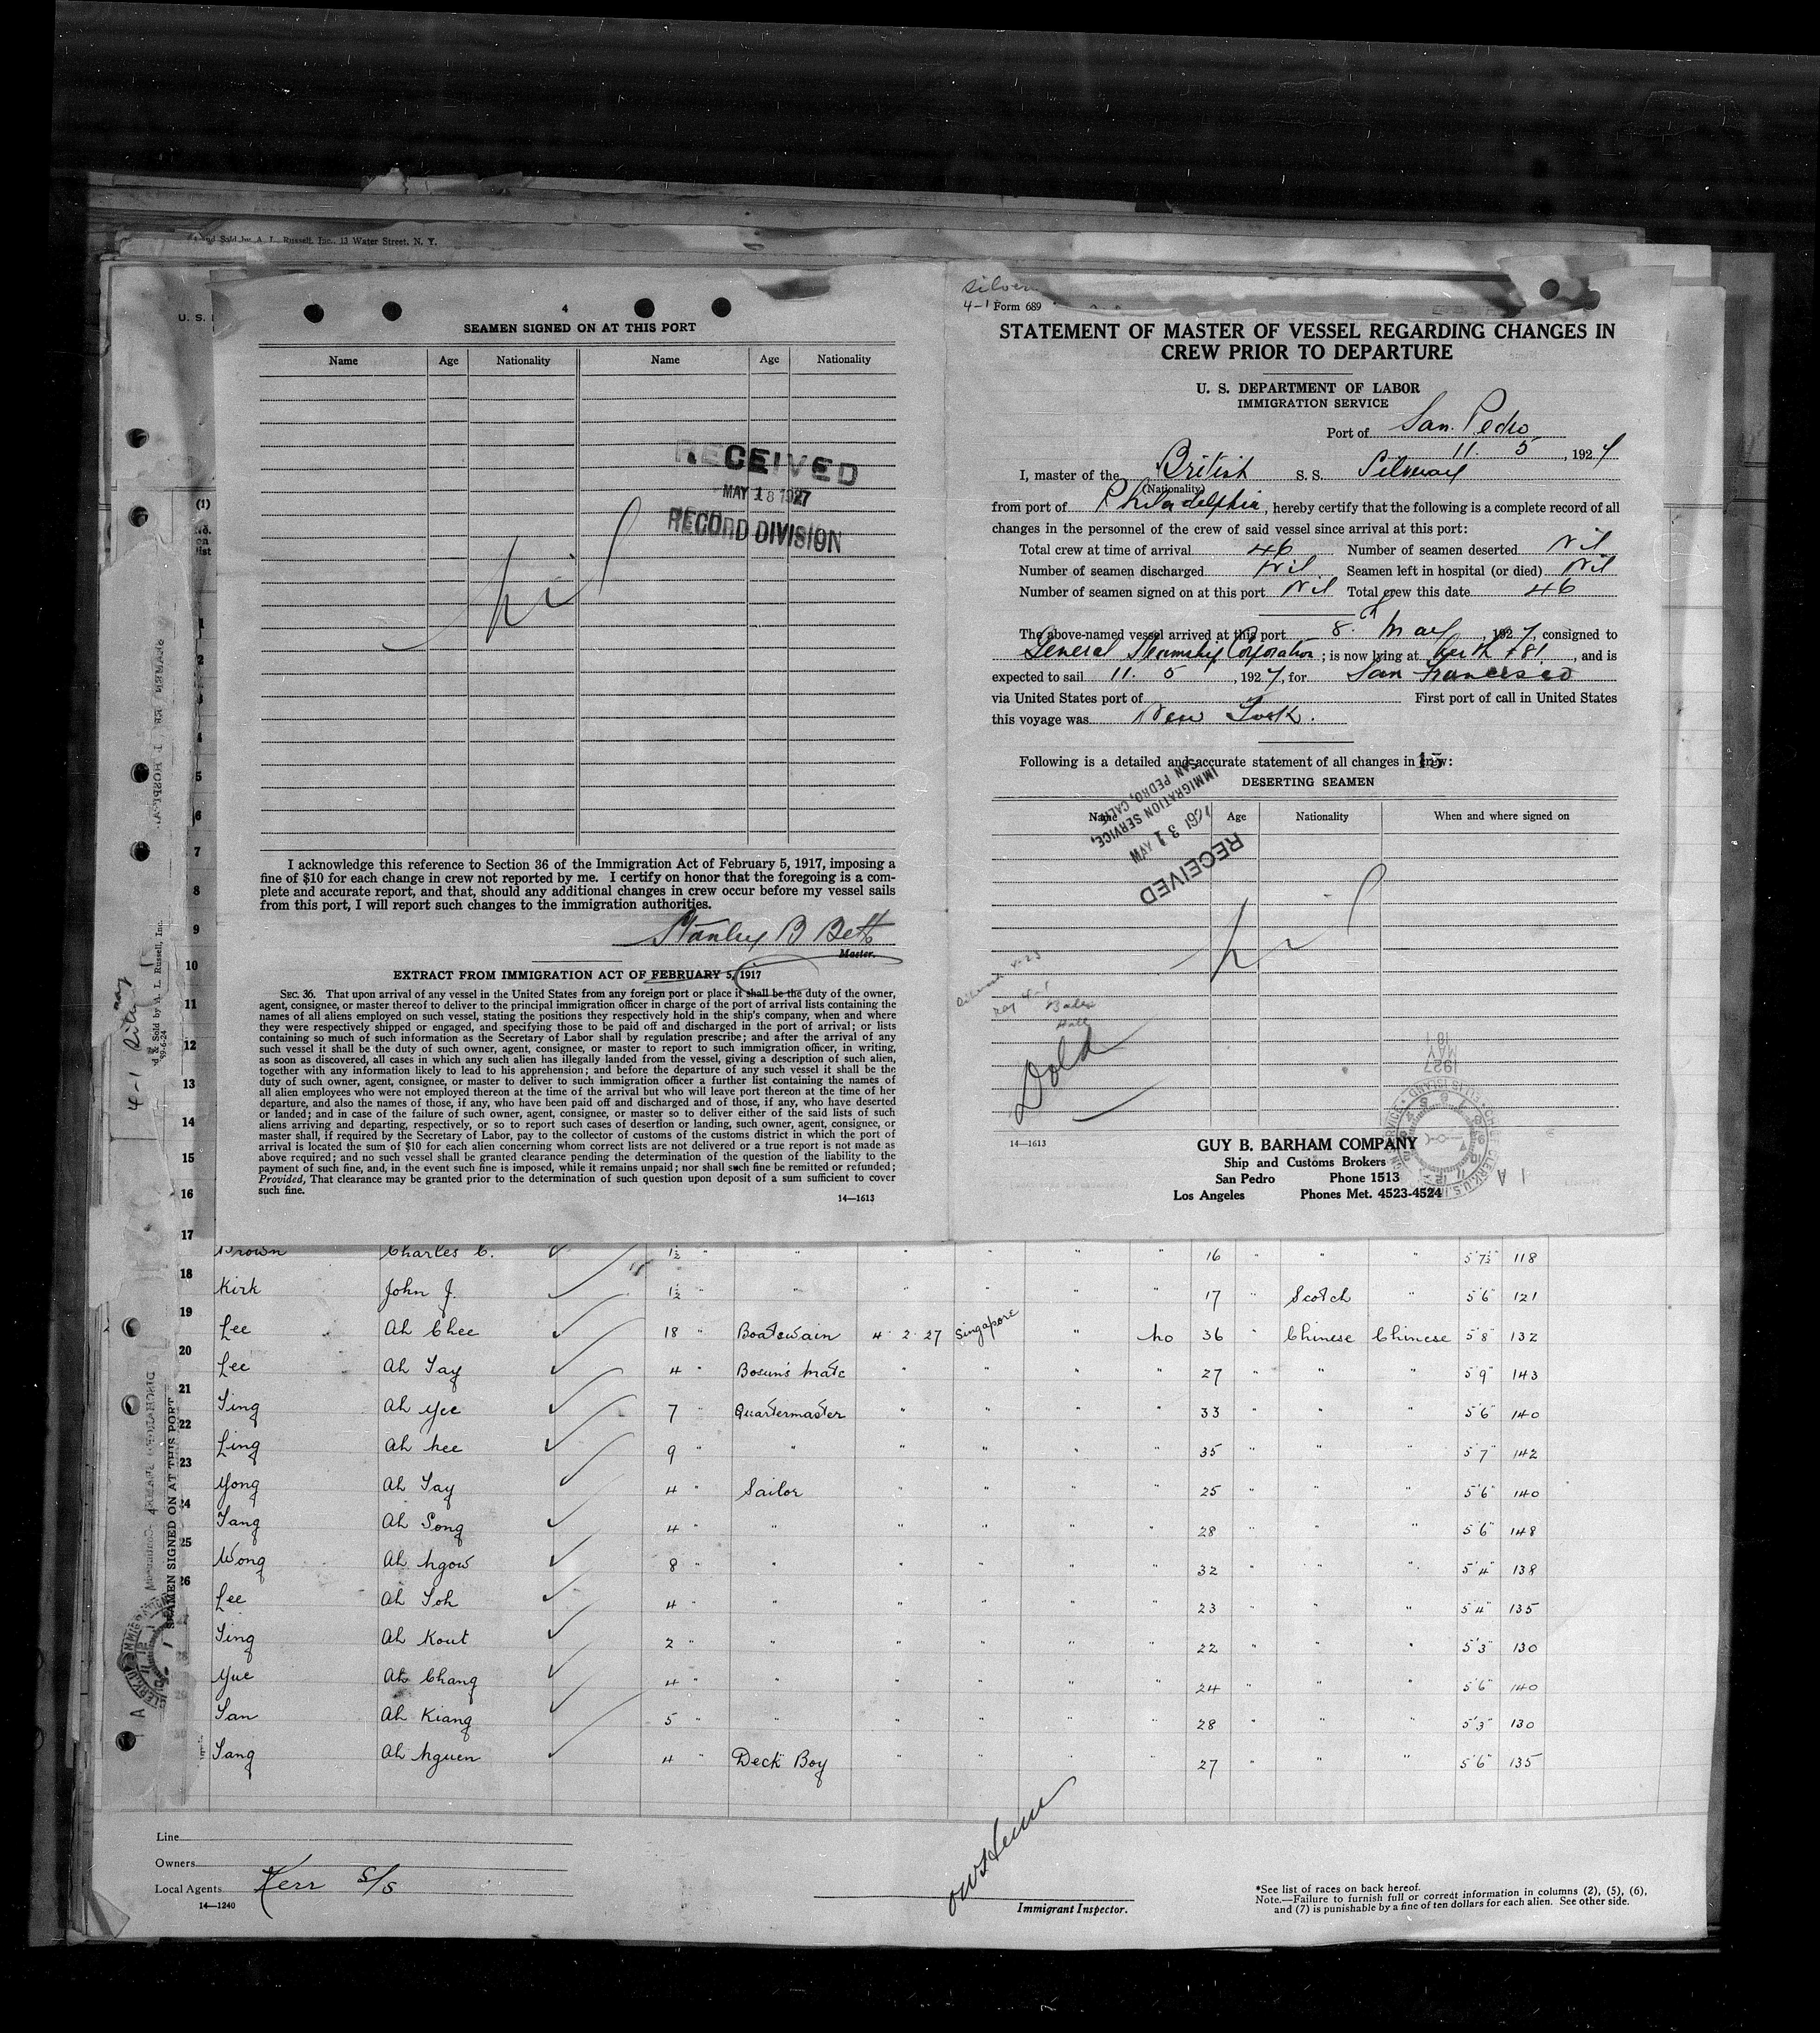 and Sold by A. L. Russell, Inc., 13 Water Street, N. Y.
U. S.
4
SEAMEN SIGNED ON AT THIS PORT
Name Age Nationality Name Age Nationality
RECEIVED
MAY 18 1927
RECORD DIVISION
Nil
I acknowledge this reference to Section 36 of the Immigration Act of February 5, 1917, imposing a
fine of $10 for each change in crew not reported by me. I certify on honor that the foregoing is a com-
plete and accurate report, and that, should any additional changes in crew occur before my vessel sails
from this port, I will report such changes to the immigration authorities.
Stanley B Bett
Master.
EXTRACT FROM IMMIGRATION ACT OF FEBRUARY 5, 1917
SEC. 36. That upon arrival of any vessel in the United States from any foreign port or place it shall be the duty of the owner,
agent, consignee, or master thereof to deliver to the principal immigration officer in charge of the port of arrival lists containing the
names of all aliens employed on such vessel, stating the positions they respectively hold in the ship's company, when and where
they were respectively shipped or engaged, and specifying those to be paid off and discharged in the port of arrival; or lists
containing so much of such information as the Secretary of Labor shall by regulation prescribe; and after the arrival of any
such vessel it shall be the duty of such owner, agent, consignee, or master to report to such immigration officer, in writing,
as soon as discovered, all cases in which any such alien has illegally landed from the vessel, giving a description of such alien,
together with any information likely to lead to his apprehension; and before the departure of any such vessel it shall be the
duty of such owner, agent, consignee, or master to deliver to such immigration officer a further list containing the names of
all alien employees who were not employed thereon at the time of the arrival but who will leave port thereon at the time of her
departure, and also the names of those, if any, who have been paid off and discharged and of those, if any, who have deserted
or landed; and in case of the failure of such owner, agent, consignee, or master so to deliver either of the said lists of such
aliens arriving and departing, respectively, or so to report such cases of desertion or landing, such owner, agent, consignee, or
master shall, if required by the Secretary of Labor, pay to the collector of customs of the customs district in which the port of
arrival is located the sum of $10 for each alien concerning whom correct lists are not delivered or a true report is not made as
above required; and no such vessel shall be granted clearance pending the determination of the question of the liability to the
payment of such fine, and, in the event such fine is imposed, while it remains unpaid; nor shall such fine be remitted or refunded;
Provided, That clearance may be granted prior to the determination of such question upon deposit of a sum sufficient to cover
such fine.
14—1613
4-1 Form 689
STATEMENT OF MASTER OF VESSEL REGARDING CHANGES IN
CREW PRIOR TO DEPARTURE
U. S. DEPARTMENT OF LABOR
IMMIGRATION SERVICE
Port of San Pedro
11. 5, 1927
I, master of the British S. S. Silveray
(Nationality)
from port of Philadelphia, hereby certify that the following is a complete record of all
changes in the personnel of the crew of said vessel since arrival at this port:
Total crew at time of arrival 46 Number of seamen deserted Nil
Number of seamen discharged Nil Seamen left in hospital (or died) Nil
Number of seamen signed on at this port Nil Total crew this date 46
The above-named vessel arrived at this port 8th May, 1927, consigned to
General Steamship Corporation; is now lying at Berth 181, and is
expected to sail 11. 5, 1927, for San Francisco
via United States port of First port of call in United States
this voyage was New York.
Following is a detailed and accurate statement of all changes in crew:
15
DESERTING SEAMEN
Name Age Nationality When and where signed on
RECEIVED
MAY 13 1927
IMMIGRATION SERVICE,
SAN PEDRO, CALIF.
Nil
Dold
1927
MAY
14—1613
GUY B. BARHAM COMPANY
Ship and Customs Brokers
San Pedro Phone 1513
Los Angeles Phones Met. 4523-4524
(1)
No.
on
list
1
2
3
4
5
6
7
8
9
10
11
12
13
14
15
16
17
18
19
20
21
22
23
24
25
26
SEAMEN SIGNED ON AT THIS PORT
Brown Charles C. 1½ " " " " " " 16 " " " 5'7½" 118
Kirk John J. 1½ " " " " " " 17 " Scotch " 5'6" 121
Lee Ah Chee 18 " Boatswain 4.2.27 Singapore " No 36 " Chinese Chinese 5'8" 132
Lee Ah Tay 4 " Bosun's Mate " " " " 27 " " " 5'9" 143
Ting Ah Yee 7 " Quartermaster " " " " 33 " " " 5'6" 140
Ling Ah Nee 9 " " " " " " 35 " " " 5'7" 142
Yong Ah Tay 4 " Sailor " " " " 25 " " " 5'6" 140
Tang Ah Song 4 " " " " " " 28 " " " 5'6" 148
Wong Ah Ngow 8 " " " " " " 32 " " " 5'4" 138
Lee Ah Toh 4 " " " " " " 23 " " " 5'4" 135
Ting Ah Kout 2 " " " " " " 22 " " " 5'3" 130
Yue Ah Chang 4 " " " " " " 24 " " " 5'6" 140
San Ah Kiang 5 " " " " " " 28 " " " 5'3" 130
Tang Ah Nguen 4 " Deck Boy " " " " 27 " " " 5'6" 135
Line
Owners
Local Agents Kerr S/S
14—1240
Immigrant Inspector.
*See list of races on back hereof.
Note.—Failure to furnish full or correct information in columns (2), (5), (6),
and (7) is punishable by a fine of ten dollars for each alien. See other side.